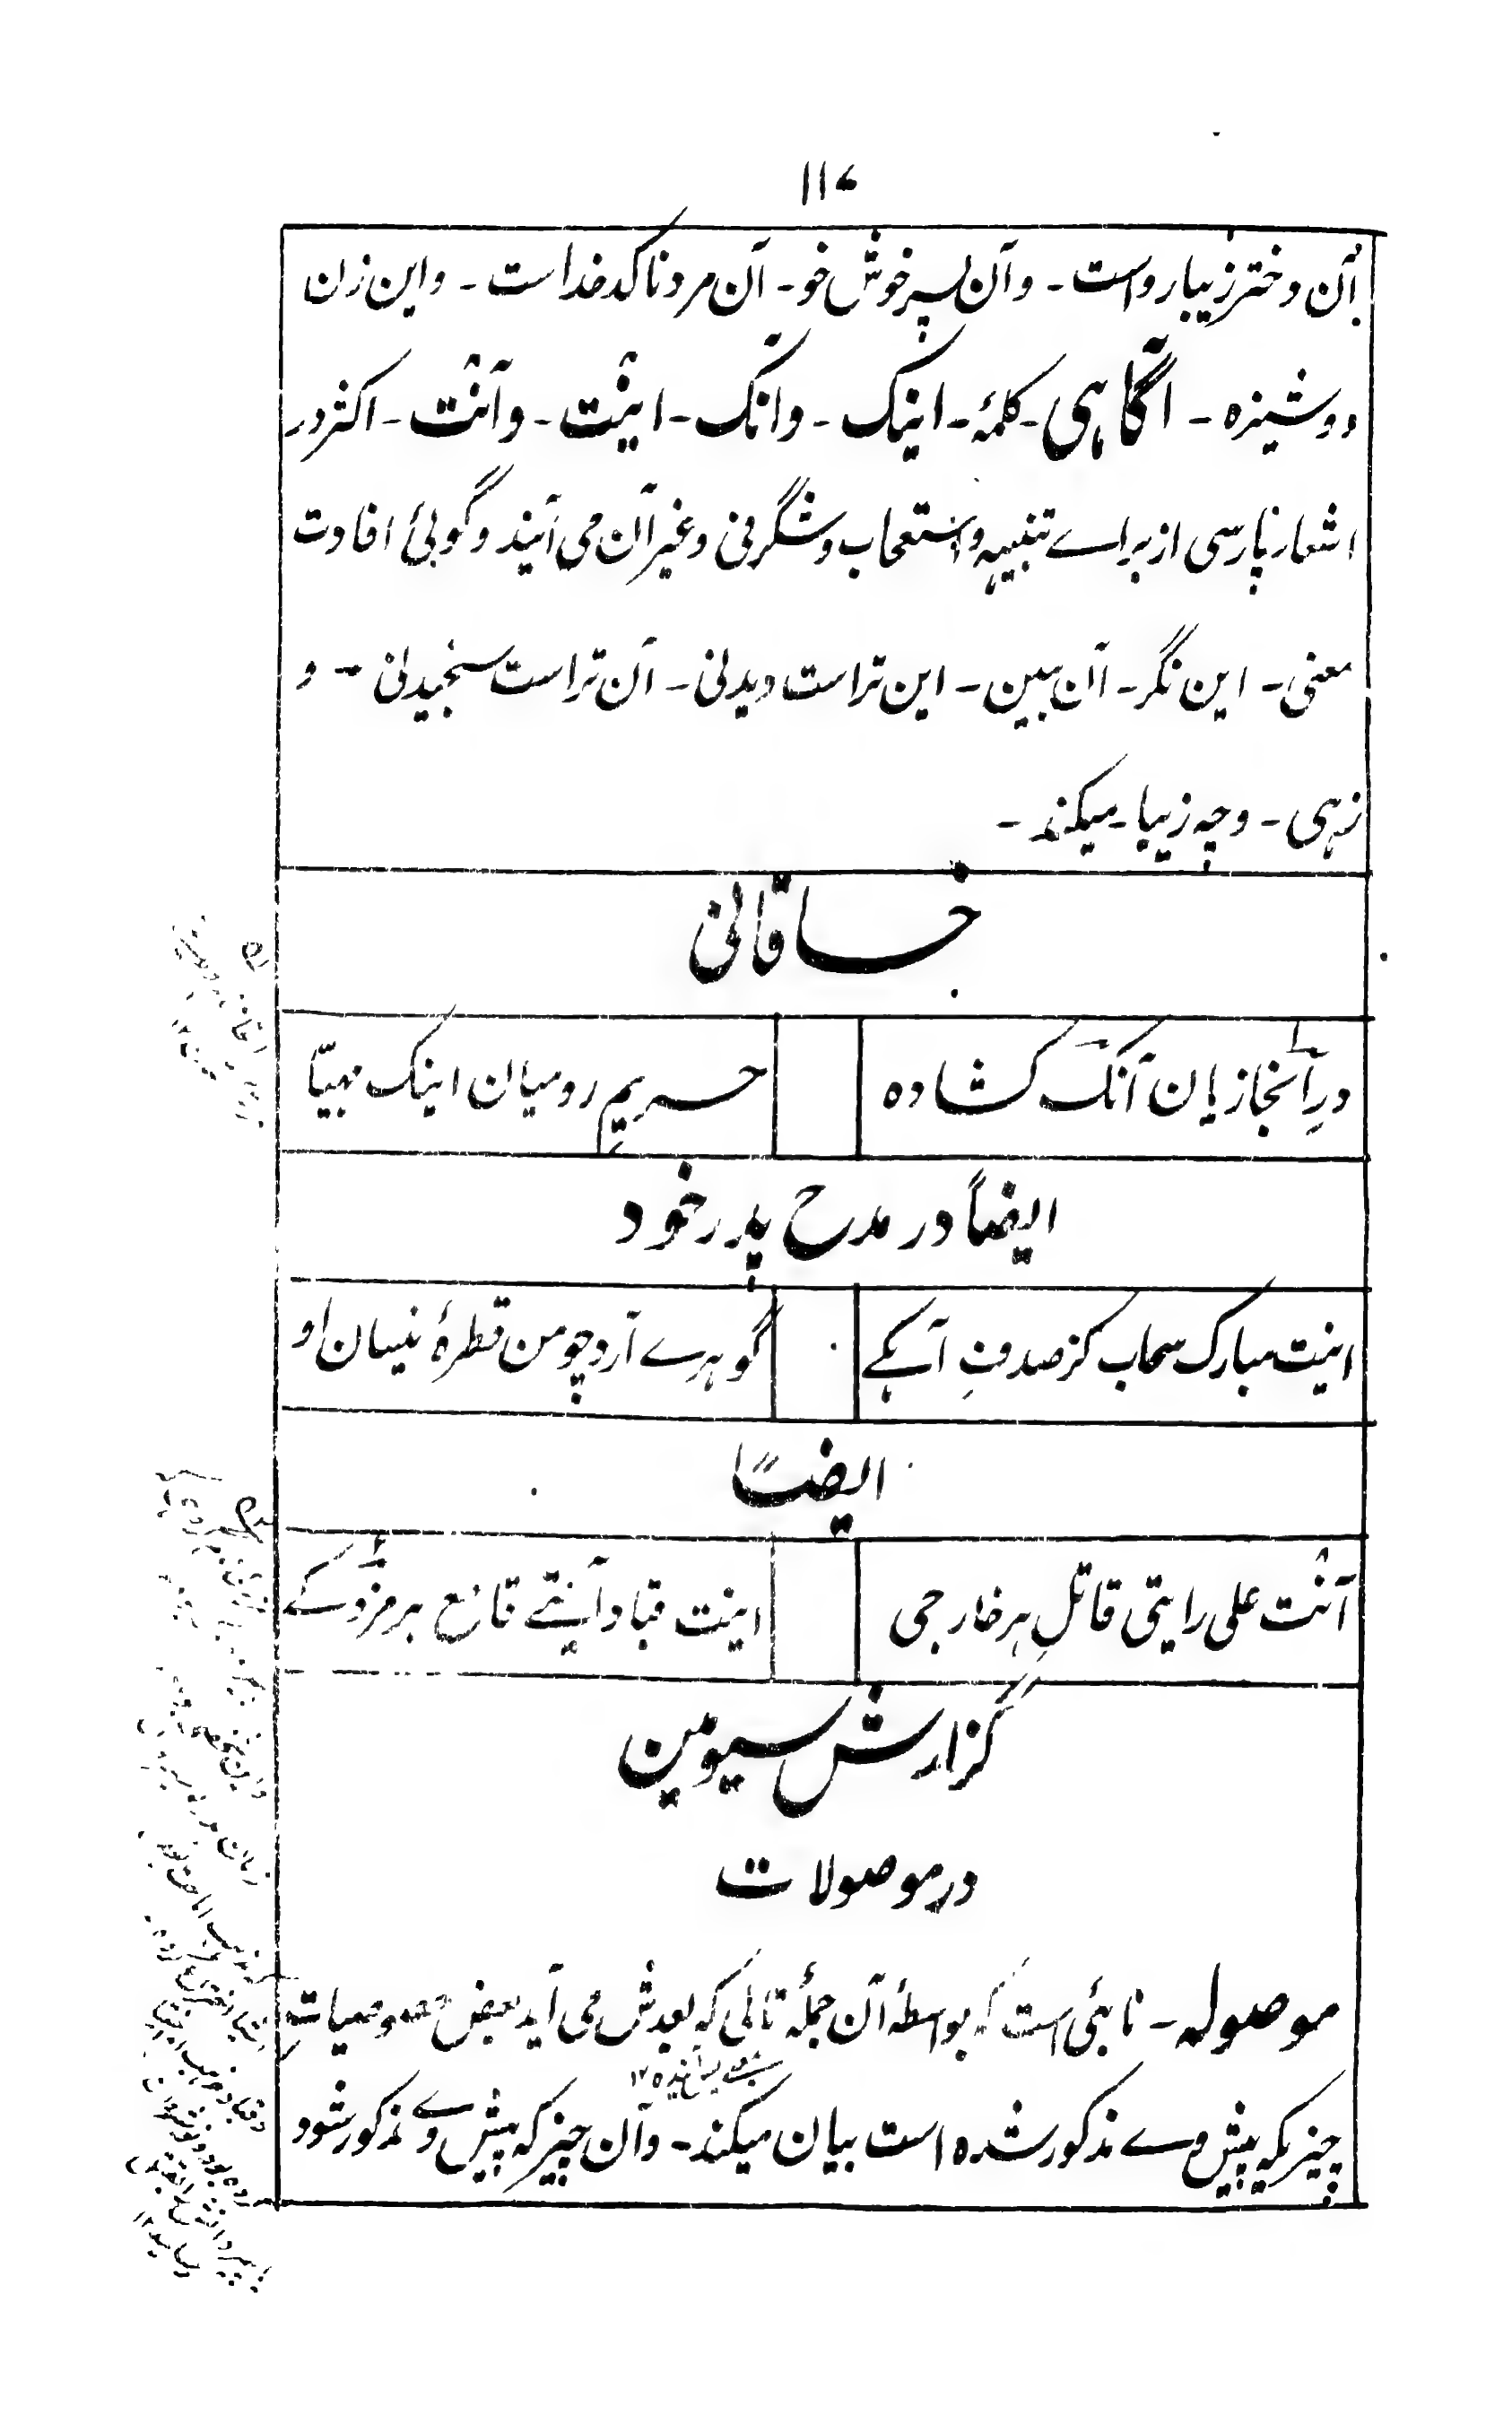 ۱۱۷
آن دختر زیبا رو است - و آن پسر خوش خو - آن مرد ناکدخدا ست - و این زن
دوشیزه - آگاہی - کلمۂ - اینک - و انک - اینْت - و آنْت - اکثر در
اشعار پارسی از برای تنبیہ و استعجاب و شگرفی و غیر آن می آیند و گوئی افادت
معنی - این نگر - آن ببین - این تراست دیدنی - آن تراست سنجیدنی - و
زہی - و چہ زیبا - میکند -
خاقانی
درِ آبخازیان آنک کشادہ
حریمِ رومیان اینک مہیّا
ایضاً در مدح پدر خود
اینت مبارک سحاب کز صدفِ آبکے
گوہرے آرد چو من قطرۂ نیسان او
ایضاً
آنْت علی رایتی قاتلِ ہر خارجی
اینت قباد آیتے قامع ہر مزدکے
گزارش سیومین
در موصولات
موصولہ - نامی است کہ بواسطۂ آن جملۂ تالی کہ بعدش می آید بعض خصوصیات
چیزیکہ پیش وے مذکور شدہ است بیان میکند - و آن چیز کہ پیش وے مذکور شود